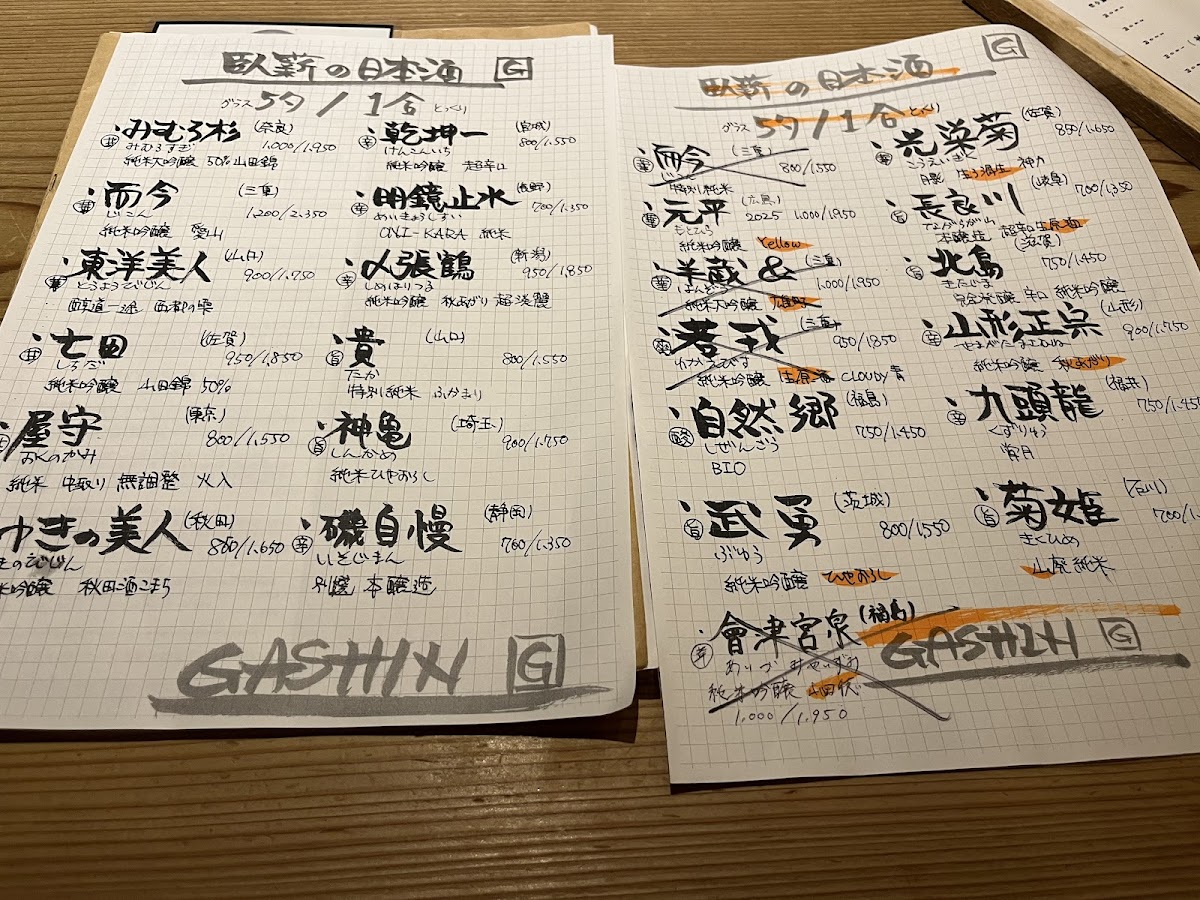 臥薪の日本酒 G
グラス 5勺/1合 とっくり
・みむろ杉 (奈良)
みむろすぎ 1.000/1.950
純米大吟醸 50%山田錦
・而今 (三重)
じこん 1.200/2.350
純米吟醸 愛山
・東洋美人 (山口)
とうようびじん 900/1.750
醇道一途 西都の雫
・七田 (佐賀)
しちだ 950/1.850
純米吟醸 山田錦 50%
屋守 (東京)
おくのかみ 800/1.550
純米 中取り 無調整 火入
ゆきの美人 (秋田)
きのびじん 850/1.650
米吟醸 秋田酒こまち
・乾坤一 (宮城)
けんこんいち 800/1.550
純米吟醸 超辛口
・明鏡止水 (長野)
辛 めいきょうしすい 700/1.350
ONI-KARA 純米
・〆張鶴 (新潟)
辛 しめはりつる 950/1.850
純米吟醸 秋あがり 超淡麗
・貴 (山口)
旨 たか 800/1.550
特別純米 ふかまり
・神亀 (埼玉)
旨 しんかめ 900/1.750
純米ひやおろし
・磯自慢 (静岡)
辛 いそじまん 700/1.350
別撰 本醸造
GASHIN G
臥薪の日本酒 G
グラス 5勺/1合 とっくり
・而今 (三重)
じこん 800/1.550
特別純米
・元平 (広島)
もとひら 2025 1.000/1.950
純米吟醸 Yellow
・半蔵& (三重)
はんぞう 1.000/1.950
純米大吟醸 雄町
・若戎 (三重)
わかえびす 950/1.850
純米吟醸 生原酒 CLOUDY 青
・自然郷 (福島)
酸 しぜんごう 750/1.450
BIO
・武勇 (茨城)
旨 ぶゆう 800/1.550
純米吟醸 ひやおろし
・會津宮泉 (福島)
あいづみやいずみ
純米吟醸
1.000/1.950
光栄菊 (佐賀)
こうえいぎく 850/1.650
月影 神力
・長良川 (岐阜)
旨 ながらがわ 700/1.350
本醸造 超辛口生原酒
・北島 (滋賀)
旨 きたじま 750/1.450
辛口 純米吟醸
・山形正宗 (山形)
辛 やまがたまさむね 900/1.750
純米吟醸 秋あがり
・九頭龍 (福井)
辛 くずりゅう 750/1.450
・菊姫 (石川)
旨 きくひめ 700/1.
山廃純米
GASHIN G